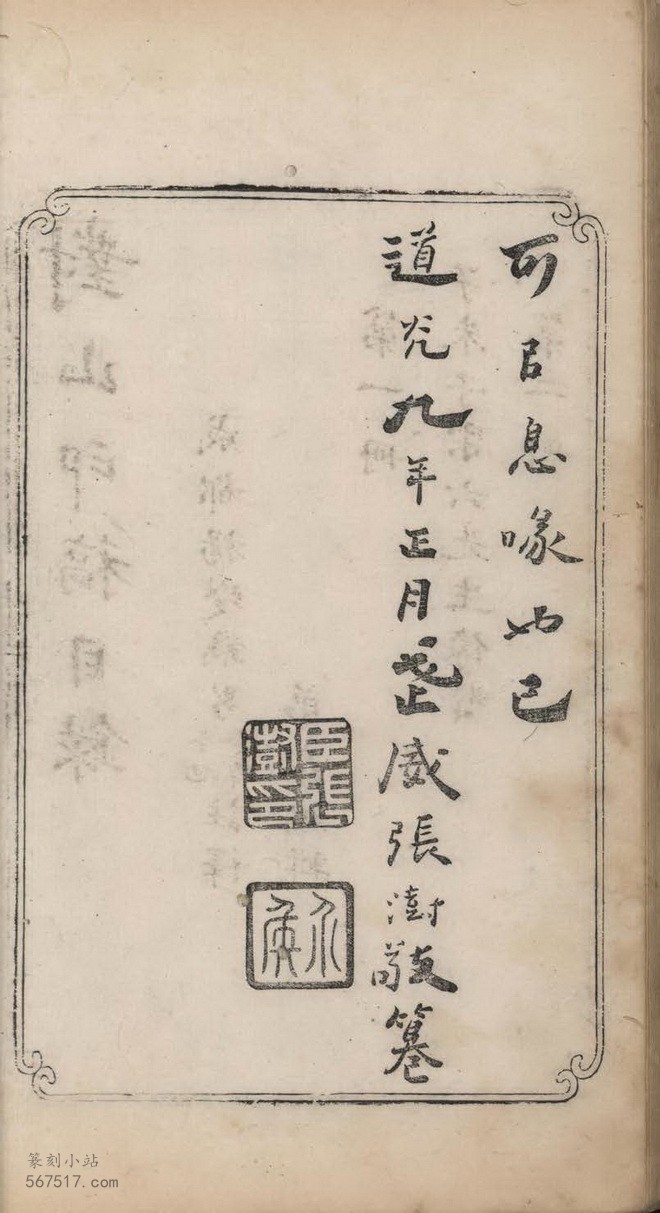 可㠯息喙也已
道光九年正月武威張澍敬篹
臣張澍印
介侯
篆刻小站
567517.com